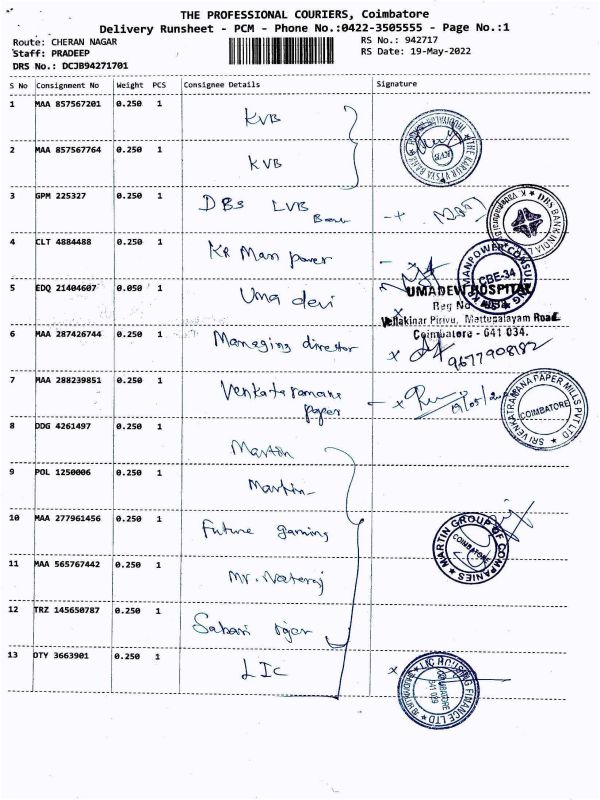 THE PROFESSIONAL COURIERS, Coimbatore
Delivery Runsheet - PCM - Phone No.:0422-3505555 - Page No.:1
Route: CHERAN NAGAR
RS No.: 942717
Staff: PRADEEP
RS Date: 19-May-2022
DRS No.: DCJB94271701
S No Consignment No Weight PCS Consignee Details Signature
1 MAA 857567201 0.250 1 KVB
2 MAA 857567764 0.250 1 KVB
THE KARUR VYSYA BANK
3 GPM 225327 0.250 1 DBS LVB
Bank
DBS BANK INDIA L
4 CLT 4884488 0.250 1 KR Man power
MANPOWER CONSULTING
CBE-34
5 EDQ 21404607 0.050 1 Uma devi
UMADEVI HOSPITAL
Reg No
Vellakinar Pirivu, Mettupalayam Road
Coimbatore - 641 034.
6 MAA 287426744 0.250 1 Managing director x 9677908182
7 MAA 288239851 0.250 1 Venkataramana
paper
x 19/05/2
SRI VENKATRAMANA PAPER MILLS PVT LTD
COIMBATORE
8 DDG 4261497 0.250 1 Martin
9 POL 1250006 0.250 1 Martin
10 MAA 277961456 0.250 1 Future gaming
MARTIN GROUP OF COMPANIES
COIMBATORE
11 MAA 565767442 0.250 1 Mr. Nataraj
12 TRZ 145650787 0.250 1 Sabari
13 OTY 3663901 0.250 1 LIC
x
LIC HOUSING FINANCE LTD
COIMBATORE